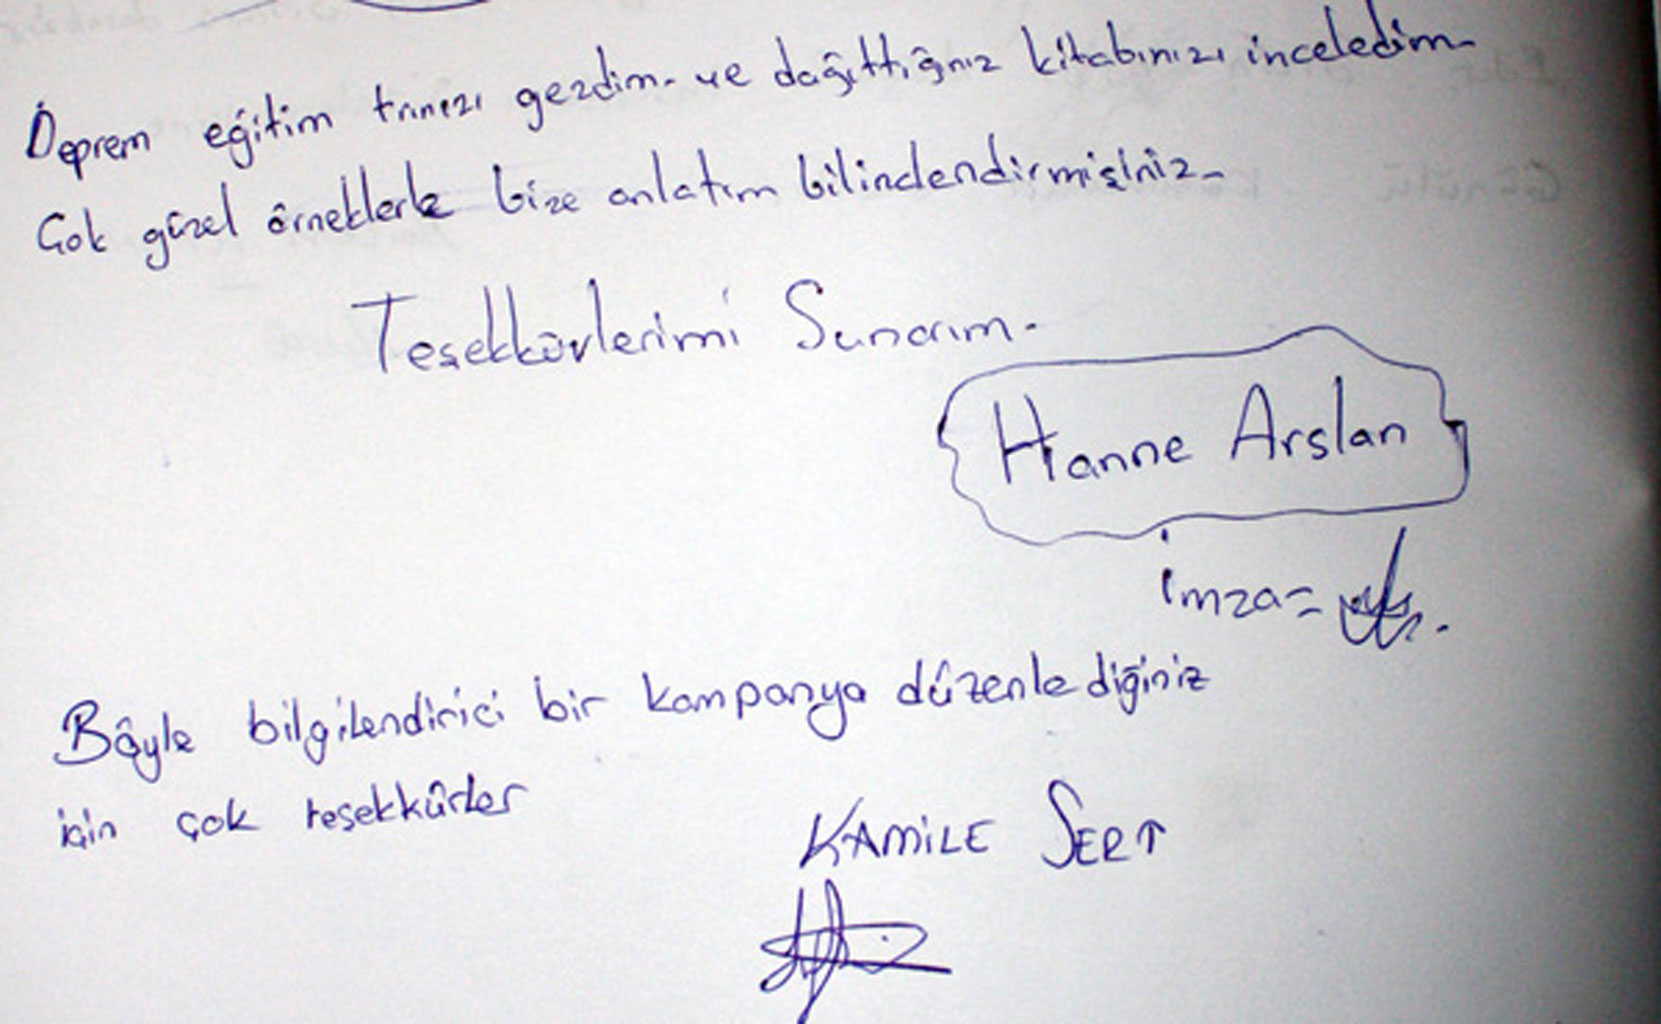 Deprem eğitim trınızı gezdim. ve dağıttığnız kitabınızı inceledim.
Çok güzel örneklerle bize anlatım bilindendirmişiniz.
Teşekkürlerimi Sunarım.
Hanne Arslan
imza=
Böyle bilgilendirici bir kampanya düzenlediğiniz
için çok teşekkürler
KAMİLE SERT